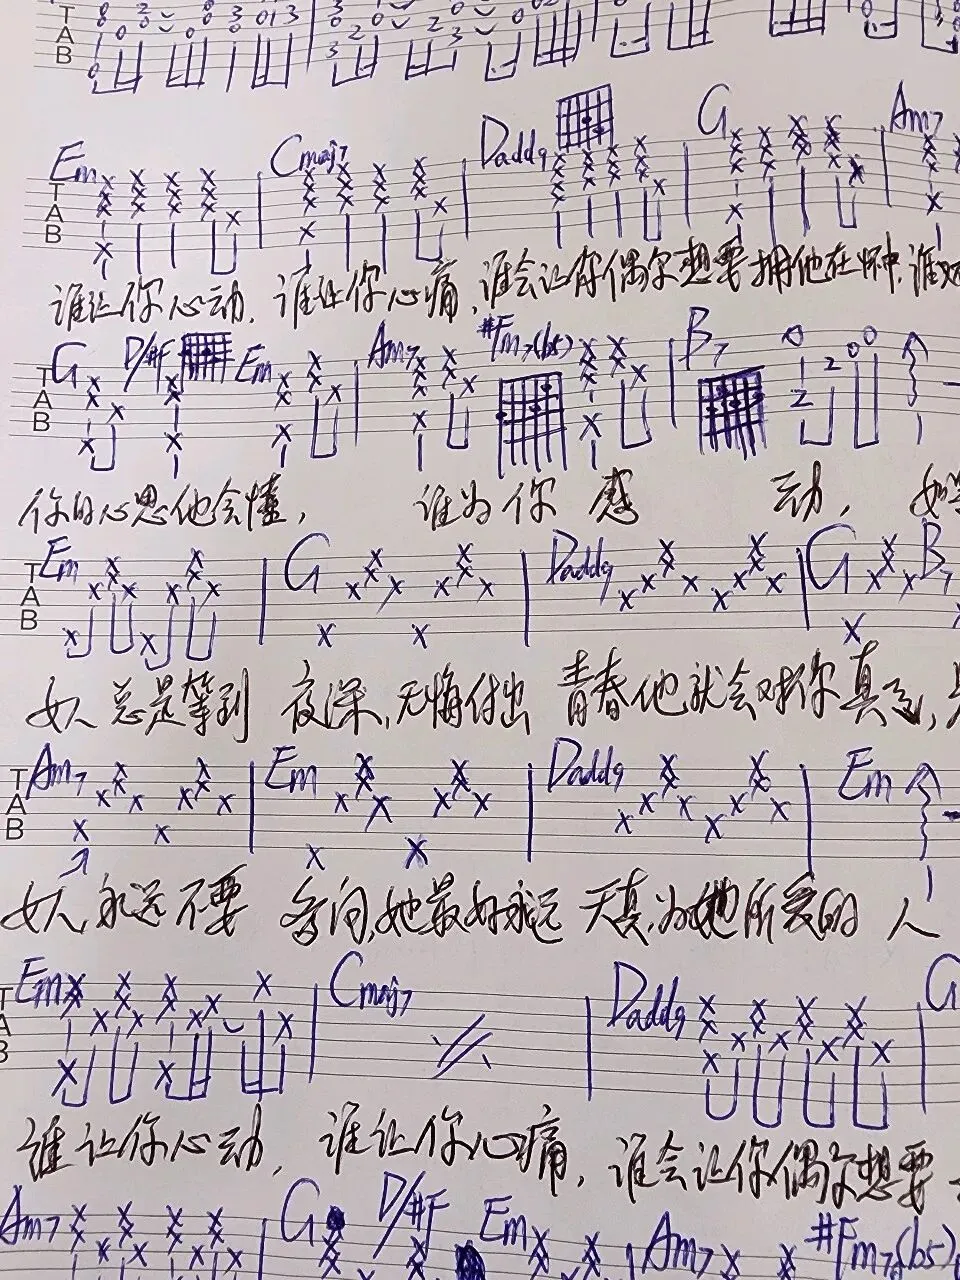 T A B
Em Cmaj7 Dadd9 G Am7
T A B
谁让你心动,谁让你心痛,谁会让你偶尔想要拥他在怀中.谁
G D/#F Em Am7 #Fm7(b5) B7
T A B
你的心思他会懂, 谁为你感动, 如
Em G Dadd9 G B7
T A B
女人总是等到夜深,无悔付出青春他就会对你真
Am7 Em Dadd9 Em
T A B
女人,永远不要多问,她最好永远天真,为她所爱的人
Em Cmaj7 Dadd9 G
谁让你心动,谁让你心痛,谁会让你偶尔想要
Am7 G D/#F Em Am7 #Fm7(b5)